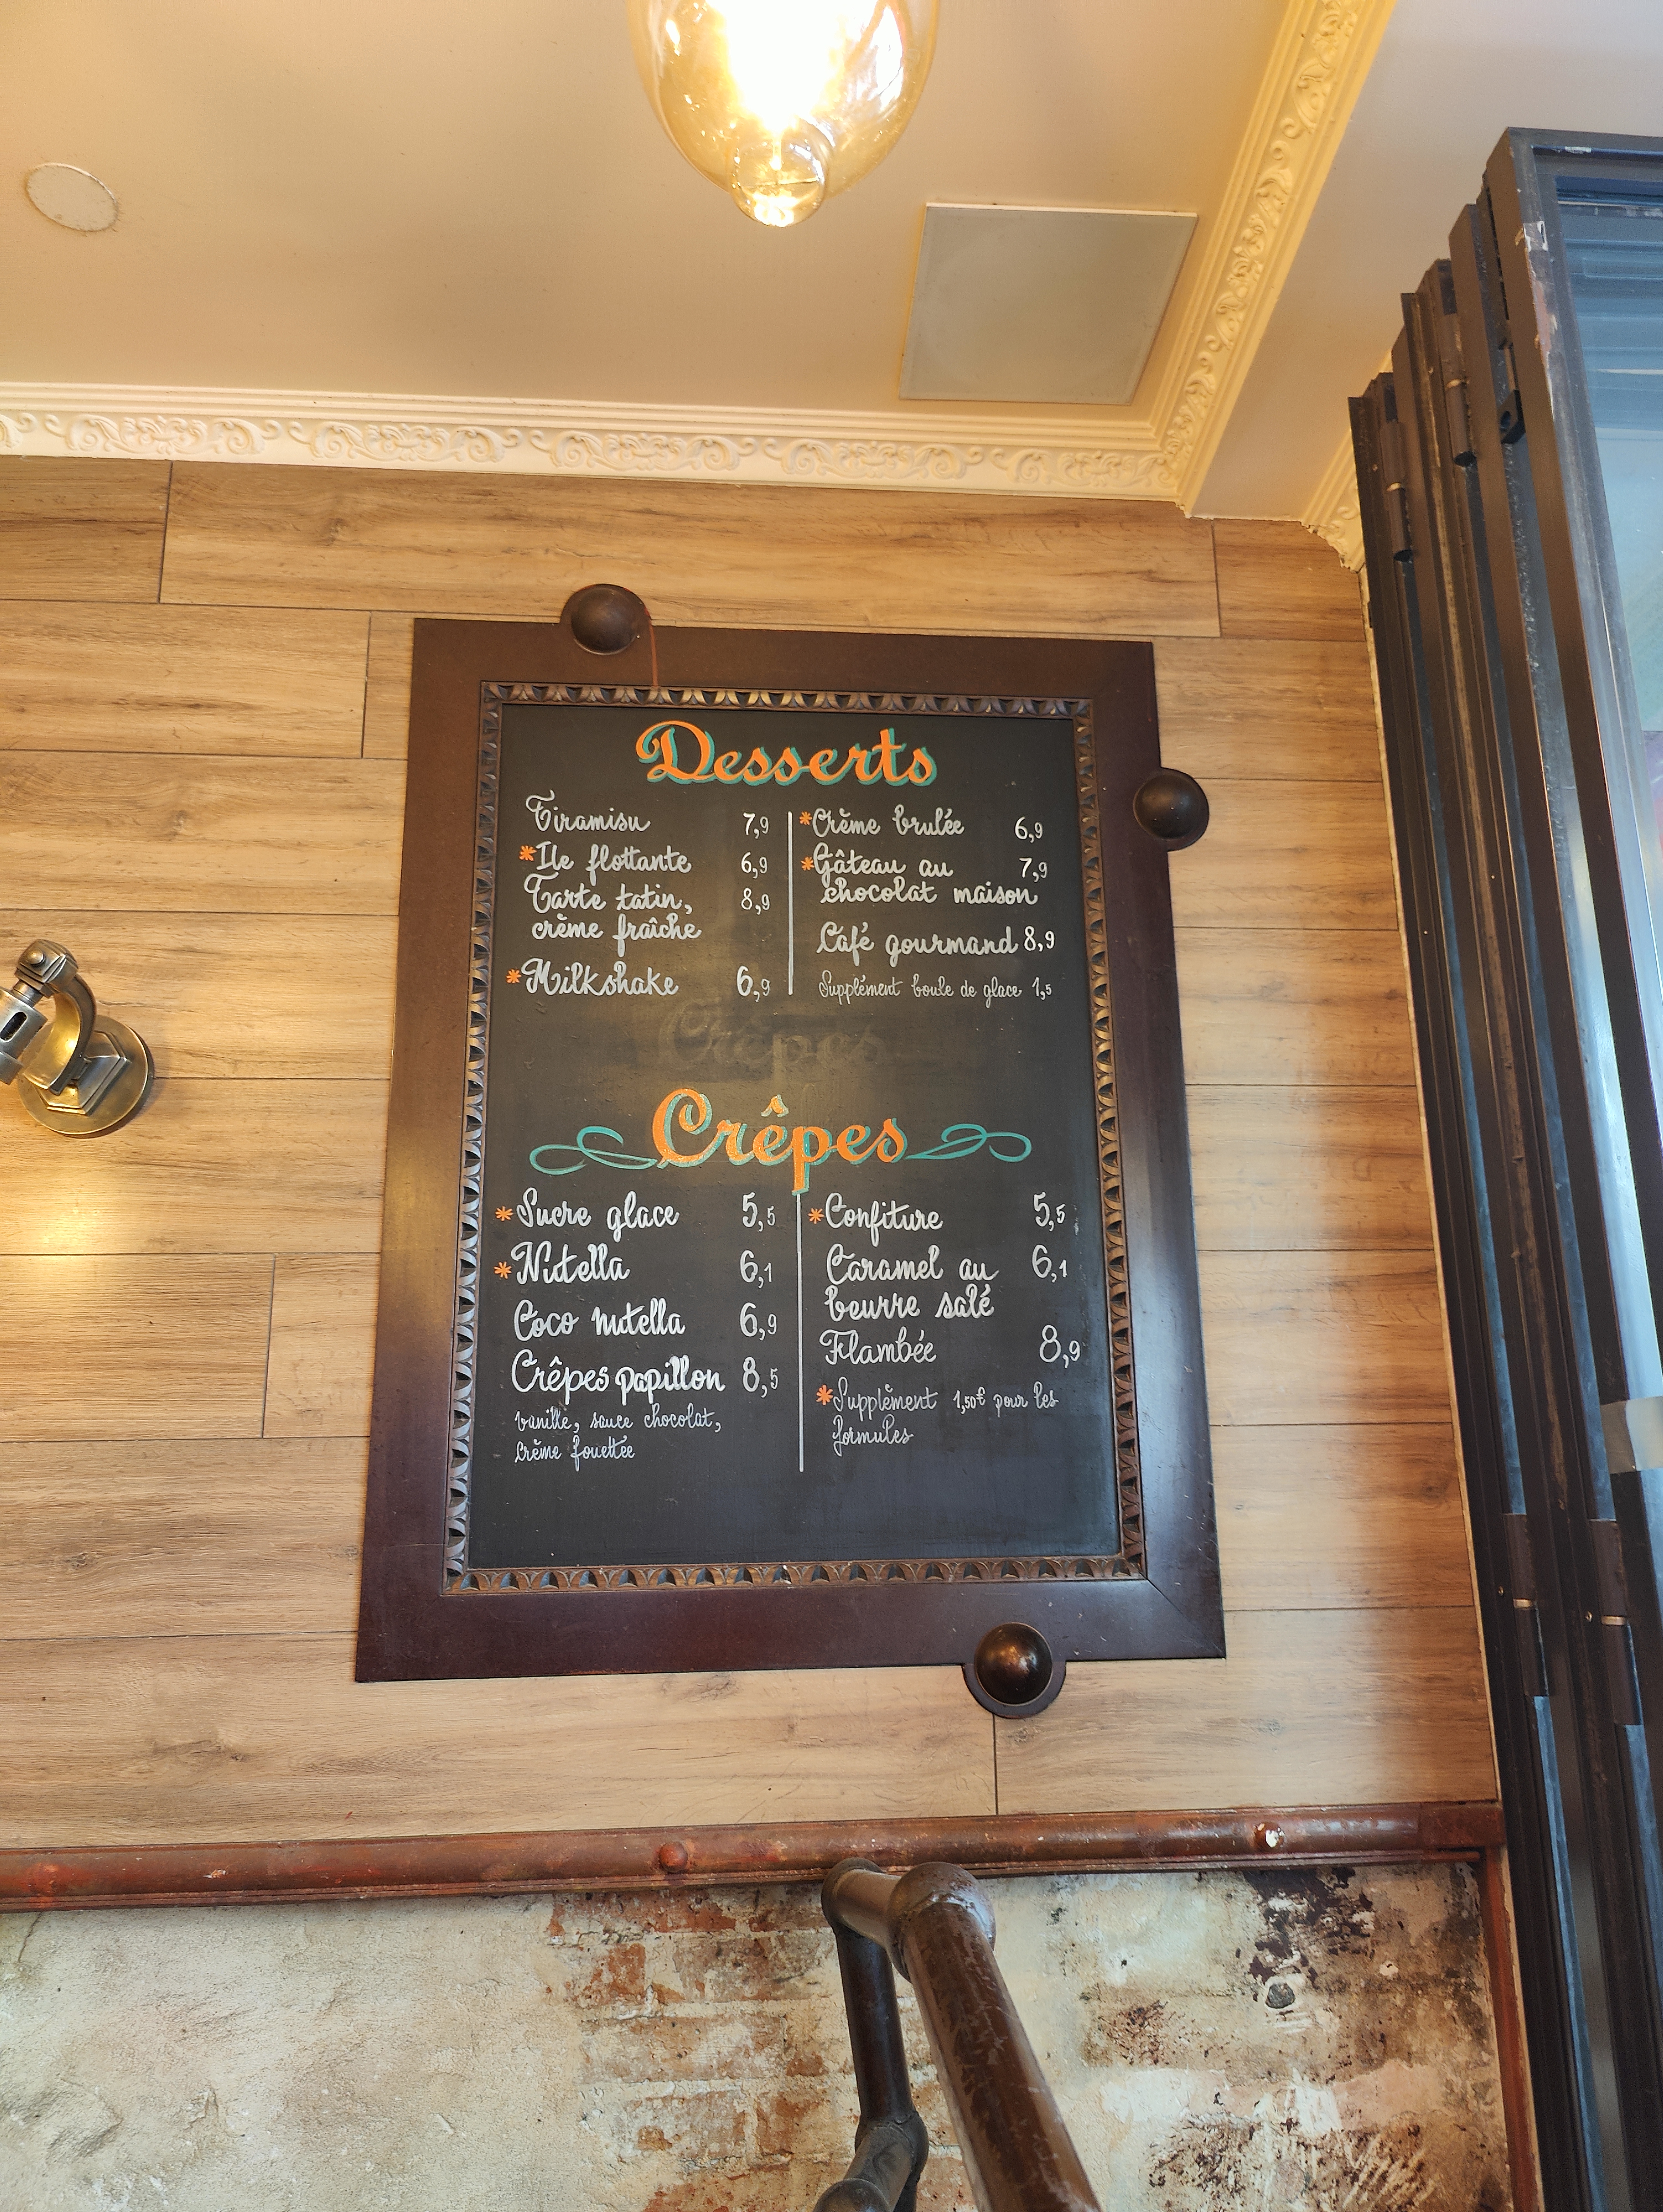 Desserts
Tiramisu 7,9
*Ile flottante 6,9
Tarte tatin, 8,9
crème fraîche
*Milkshake 6,9
*Crème brulée 6,9
*Gâteau au 7,9
chocolat maison
Café gourmand 8,9
Supplément boule de glace 1,5
Crêpes
Crêpes
*Sucre glace 5,5
*Nutella 6,1
Coco nutella 6,9
Crêpes papillon 8,5
Vanille, sauce chocolat,
Crème fouettée
*Confiture 5,5
Caramel au 6,1
beurre salé
Flambée 8,9
*Supplément 1,50€ pour les
formules